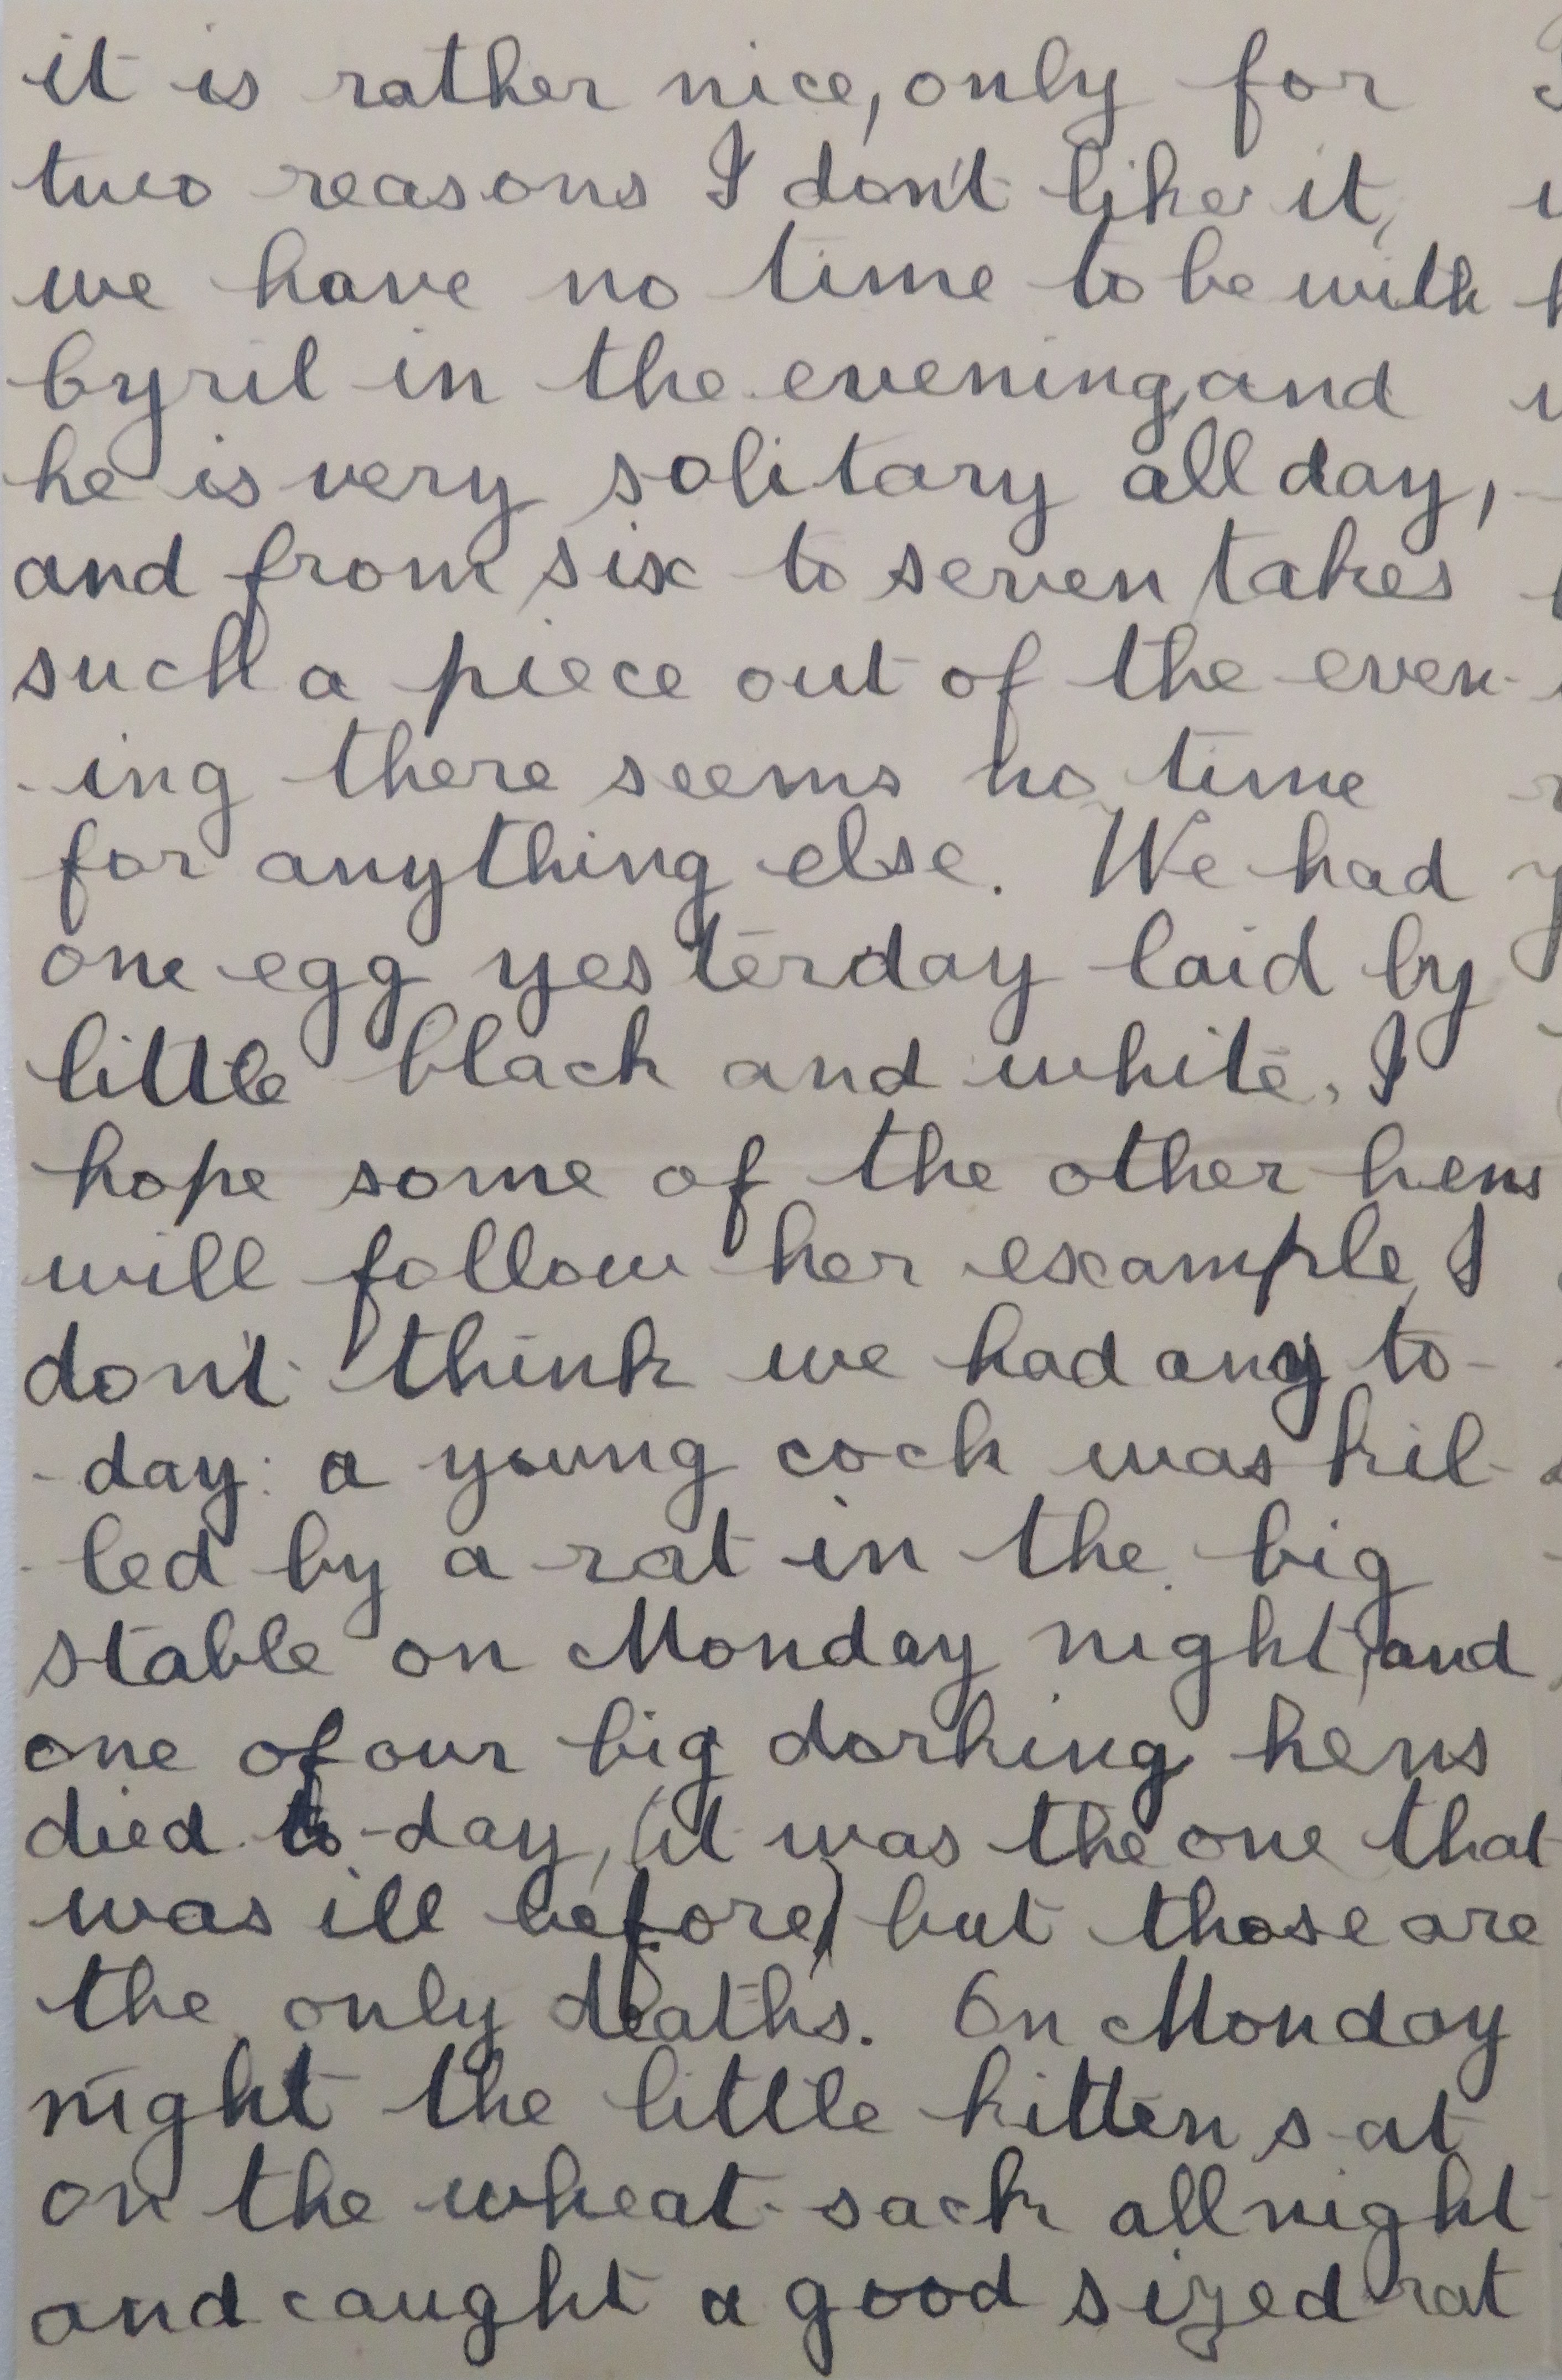 it is rather nice, only for
two reasons I don't like it,
we have no time to be with
Cyril in the evening, and
he is very solitary all day,
and from six to seven takes
such a piece out of the even-
-ing there seems no time
for anything else. We had
one egg yesterday laid by
little black and white, I
hope some of the other hens
will follow her example, I
don't think we had any to-
-day: a young cock was kil-
-led by a rat in the big
stable on Monday night, and
one of our big dorking hens
died to-day, (it was the one that
was ill before) but those are
the only deaths. On Monday
night the little kitten sat
on the wheat-sack all night
and caught a good sized rat